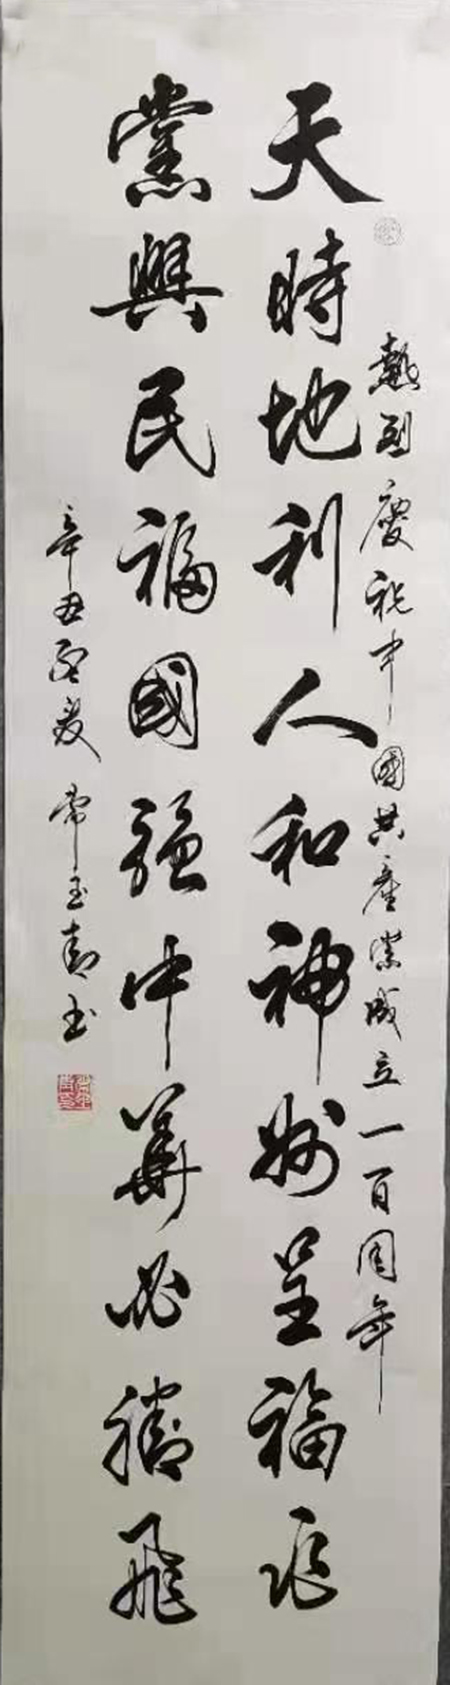 熱烈慶祝中國共產黨成立一百周年
天時地利人和神州呈福
黨興民福國強中華必騰飛
辛丑孟夏 常玉